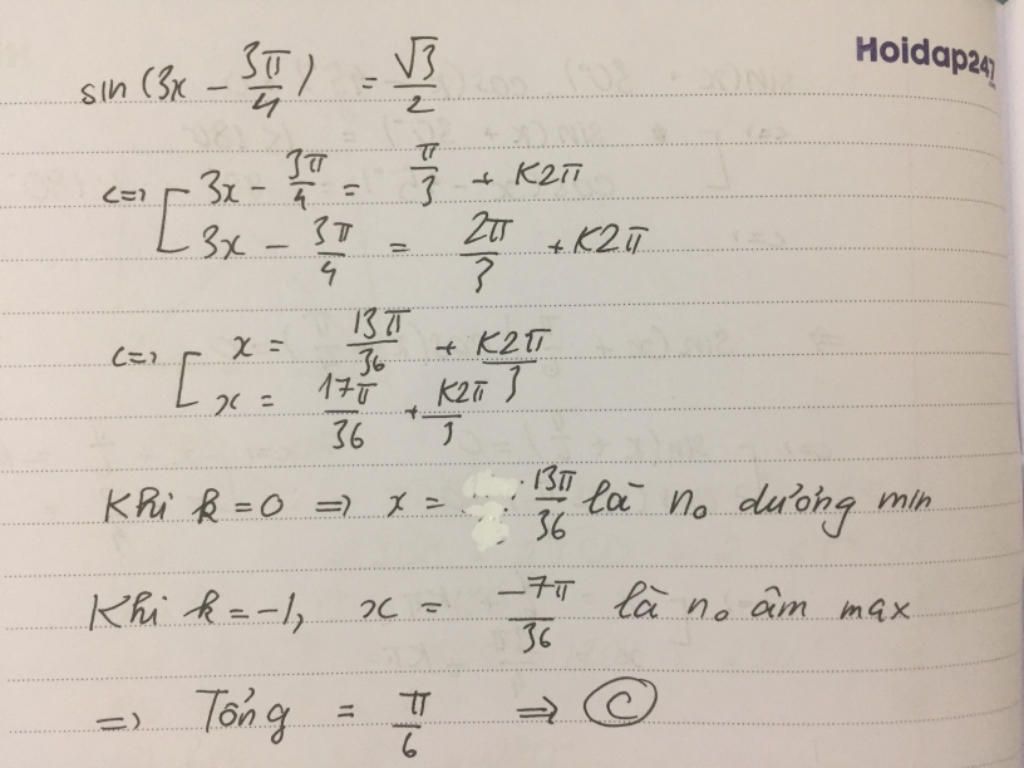 Hoidap247
sin (3x - 3π/4) = √3/2
<=> [ 3x - 3π/4 = π/3 + K2π
3x - 3π/4 = 2π/3 + K2π
<=> [ x = 13π/36 + K2π/3
x = 17π/36 + K2π/3
Khi k = 0 => x = 13π/36 là n₀ dương min
Khi k = -1, x = -7π/36 là n₀ âm max
=> Tổng = π/6 => C